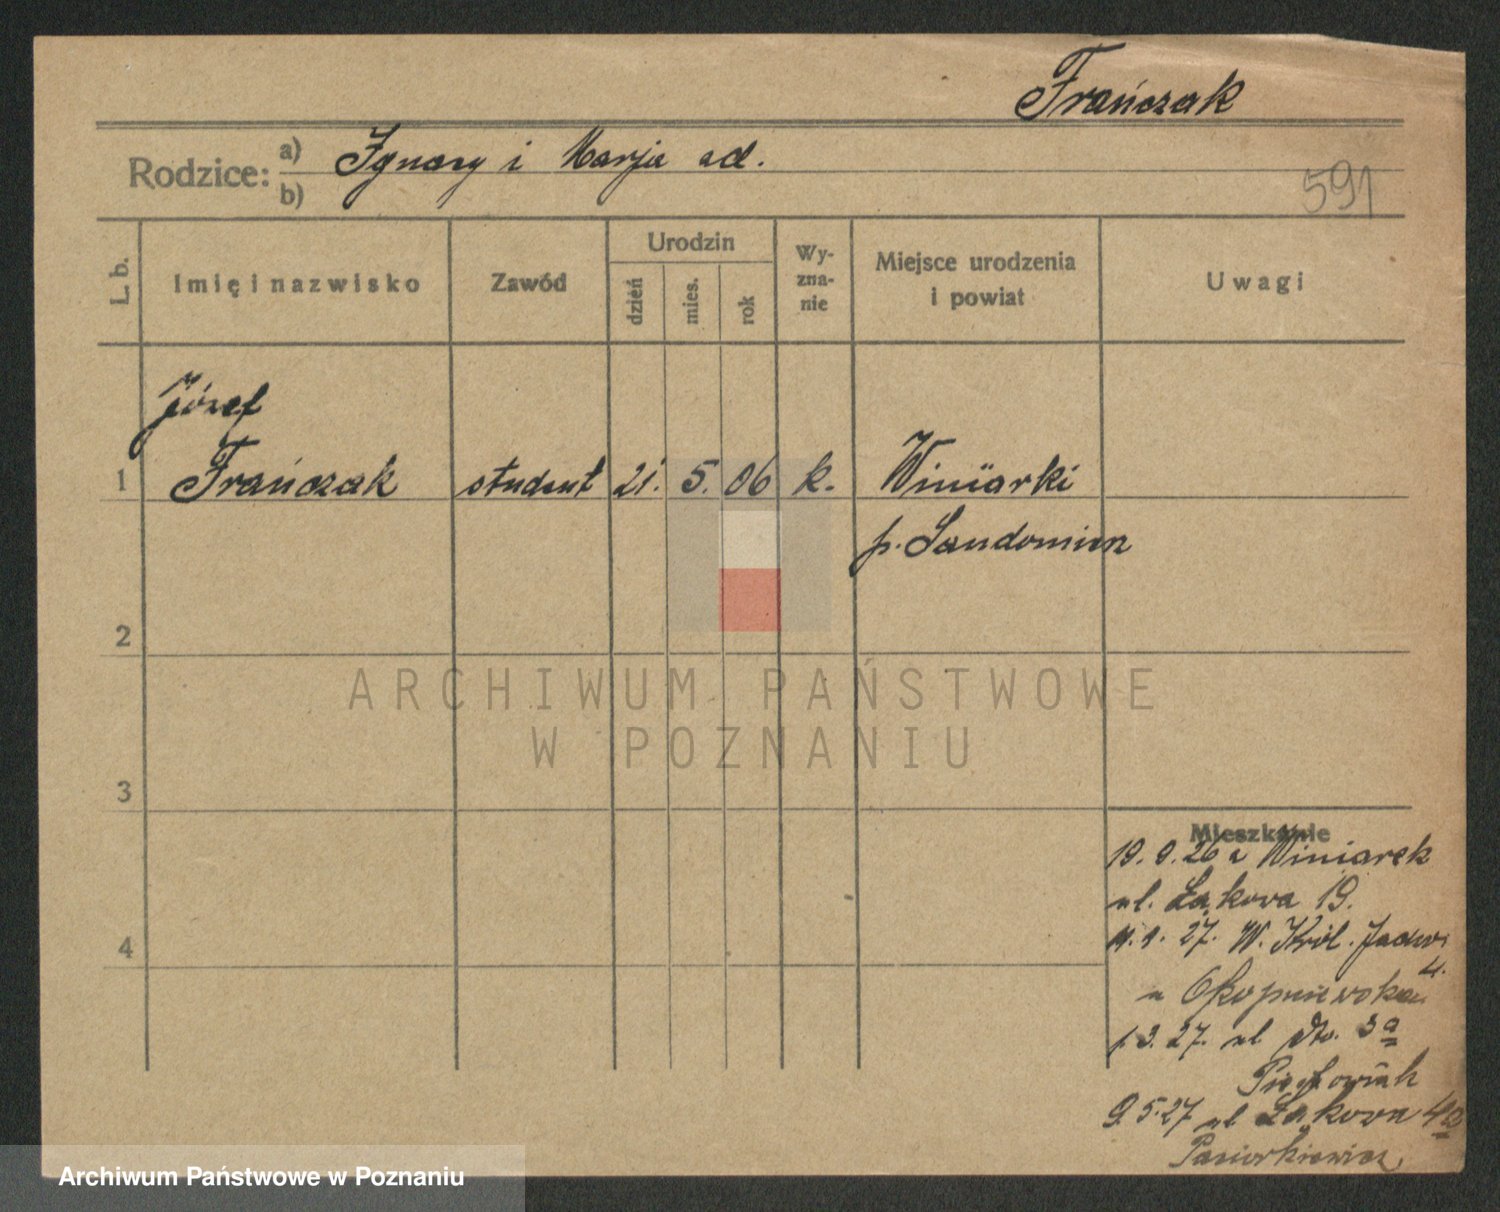 Frańczak
Rodzice: a) Ignacy i Marja
b)
591
L. b.
Imię i nazwisko
Zawód
Urodzin
dzień
mies.
rok
Wy-
zna-
nie
Miejsce urodzenia
i powiat
Uwagi
Józef
1 Frańczak student 21. 5. 06 k. Winiarki
p. Sandomierz
2
ARCHIWUM PAŃSTWOWE
W POZNANIU
3
Mieszkanie
19. 9. 26 Winiarek
ul. Łąkowa 19.
1. 27. W. Król. Jadwi
4
4.
3. 27. ul dto. 3a
9 5.27 ul Łąkowa 4a
Archiwum Państwowe w Poznaniu